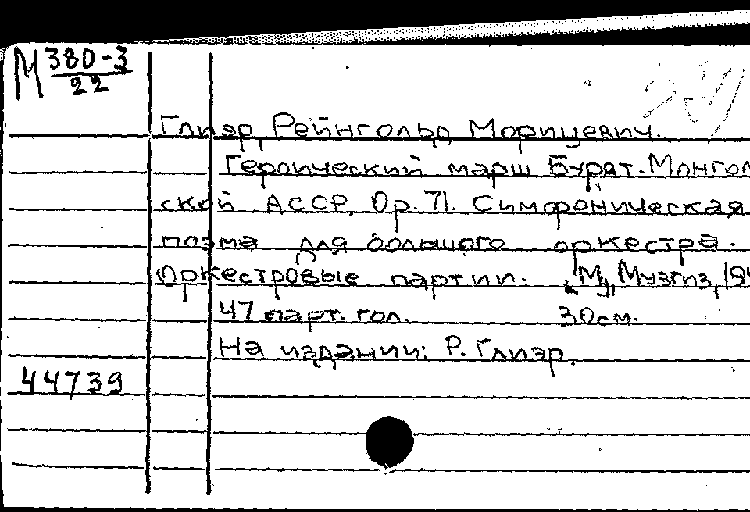 М 380-3
22
Глиэр, Рейнгольд Морицевич.
Героический марш Бурят-Монгол
ской АССР, Op. 71. Симфоническая
поэма для большого оркестра.
Оркестровые партии. М., Музгиз, 19
47 парт. гол. 30 см.
На издании: Р. Глиэр.
44739